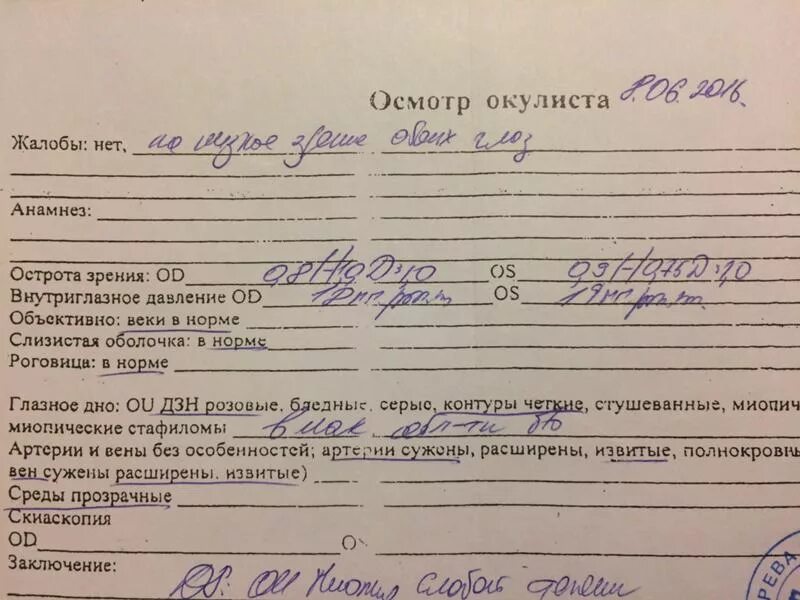 Осмотр окулиста 8.06.2016.
Жалобы: нет, на низкое зрение обоих глаз
Анамнез:
Острота зрения: OD 0,8(-)1,0D=1,0 OS 0,9(-)0,75D=1,0
Внутриглазное давление OD 18мм.рт.т. OS 19мм.рт.т.
Объективно: веки в норме
Слизистая оболочка: в норме
Роговица: в норме
Глазное дно: OU ДЗН розовые, бледные, серые, контуры четкие, стушеванные, миопич
миопические стафиломы в мак обл-ти б/о
Артерии и вены без особенностей; артерии сужены, расширены, извитые, полнокровны
вен сужены расширены, извитые)
Среды прозрачные
Скиаскопия
OD OS
Заключение:
DS: OU Миопия слабой степени
РЕВА